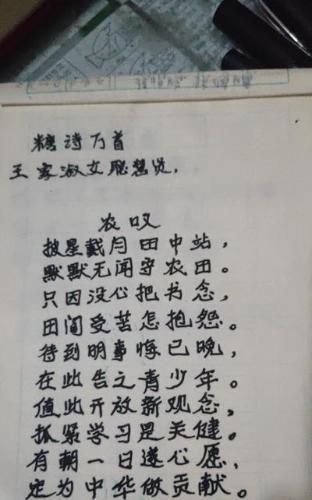 糟诗万首
王家淑女聪慧贤,
农叹
披星戴月田中站,
默默无闻守农田。
只因没心把书念,
田间受苦怎抱怨。
待到明事悔已晚,
在此告之青少年。
值此开放新观念,
抓紧学习是关健。
有朝一日遂心愿,
定为中华做贡献。